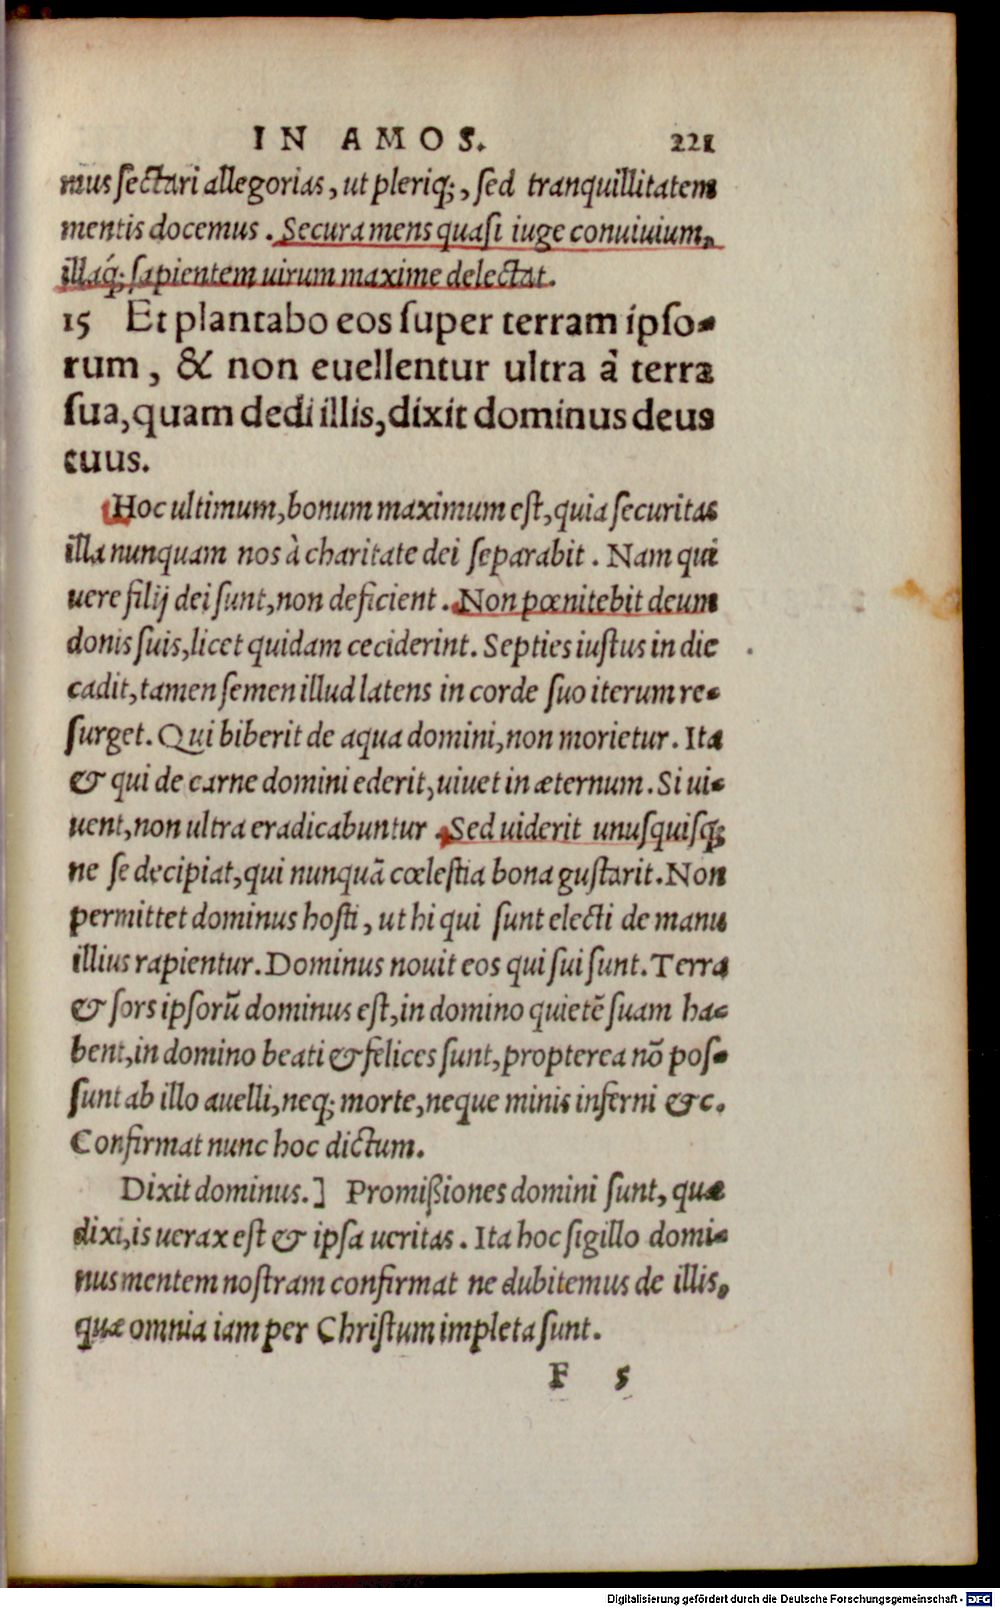 IN AMOS. 221
mus sectari allegorias, ut pleriq;, sed tranquillitatem
mentis docemus. Secura mens quasi iuge conuiuium,
illaq́; sapientem uirum maxime delectat.
15 Et plantabo eos super terram ipso-
rum, & non euellentur ultra à terra
sua, quam dedi illis, dixit dominus deus
tuus.
Hoc ultimum, bonum maximum est, quia securitas
illa nunquam nos à charitate dei separabit. Nam qui
uere filij dei sunt, non deficient. Non pœnitebit deum
donis suis, licet quidam ceciderint. Septies iustus in die
cadit, tamen semen illud latens in corde suo iterum re-
surget. Qui biberit de aqua domini, non morietur. Ita
& qui de carne domini ederit, uiuet in æternum. Si ui-
uent, non ultra eradicabuntur. Sed uiderit unusquisq;
ne se decipiat, qui nunquā cœlestia bona gustarit. Non
permittet dominus hosti, ut hi qui sunt electi de manu
illius rapientur. Dominus nouit eos qui sui sunt. Terra
& sors ipsorū dominus est, in domino quietē suam ha-
bent, in domino beati & felices sunt, propterea nō pos-
sunt ab illo auelli, neq; morte, neque minis inferni &c.
Confirmat nunc hoc dictum.
Dixit dominus.] Promißiones domini sunt, quæ
dixi, is uerax est & ipsa ueritas. Ita hoc sigillo domi-
nus mentem nostram confirmat ne dubitemus de illis,
quæ omnia iam per Christum impleta sunt.
F 5
Digitalisierung gefördert durch die Deutsche Forschungsgemeinschaft - DFG